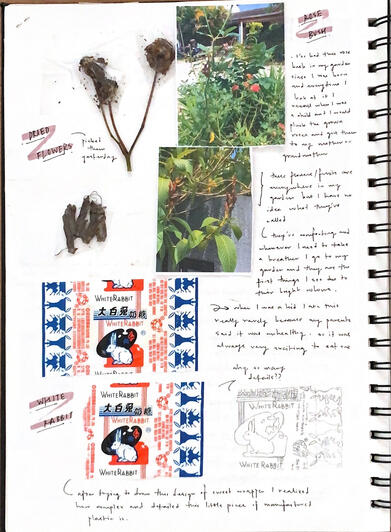 ROSE
BUSH
I've had this rose
bush in my garden
since I was born
and everytime I
look at it I
remember when I was
a child and I would
pluck the grown
roses and give them
to my mother or
grandmother
DRIED
FLOWERS
picked
them
yesterday
these flowers/fruits are
everywhere in my
garden but I have no
idea what they're
called
They're comforting and
whenever I need to take
a breather I go to my
garden and they are the
first things I see due to
their bright colours.
when I was a kid I ate this
really rarely because my parents
said it was unhealthy. so it was
always very exciting to eat one
WHITE RABBIT
大白兔奶糖
WHITE RABBIT
WHITE RABBIT
大白兔奶糖
WHITE RABBIT
why so many
details??
WHITE
RABBIT
WHITE RABBIT
WHITE RABBIT
after trying to draw this design of sweet wrapper I realized
how complex and detailed this little piece of manufactured
plastic is.